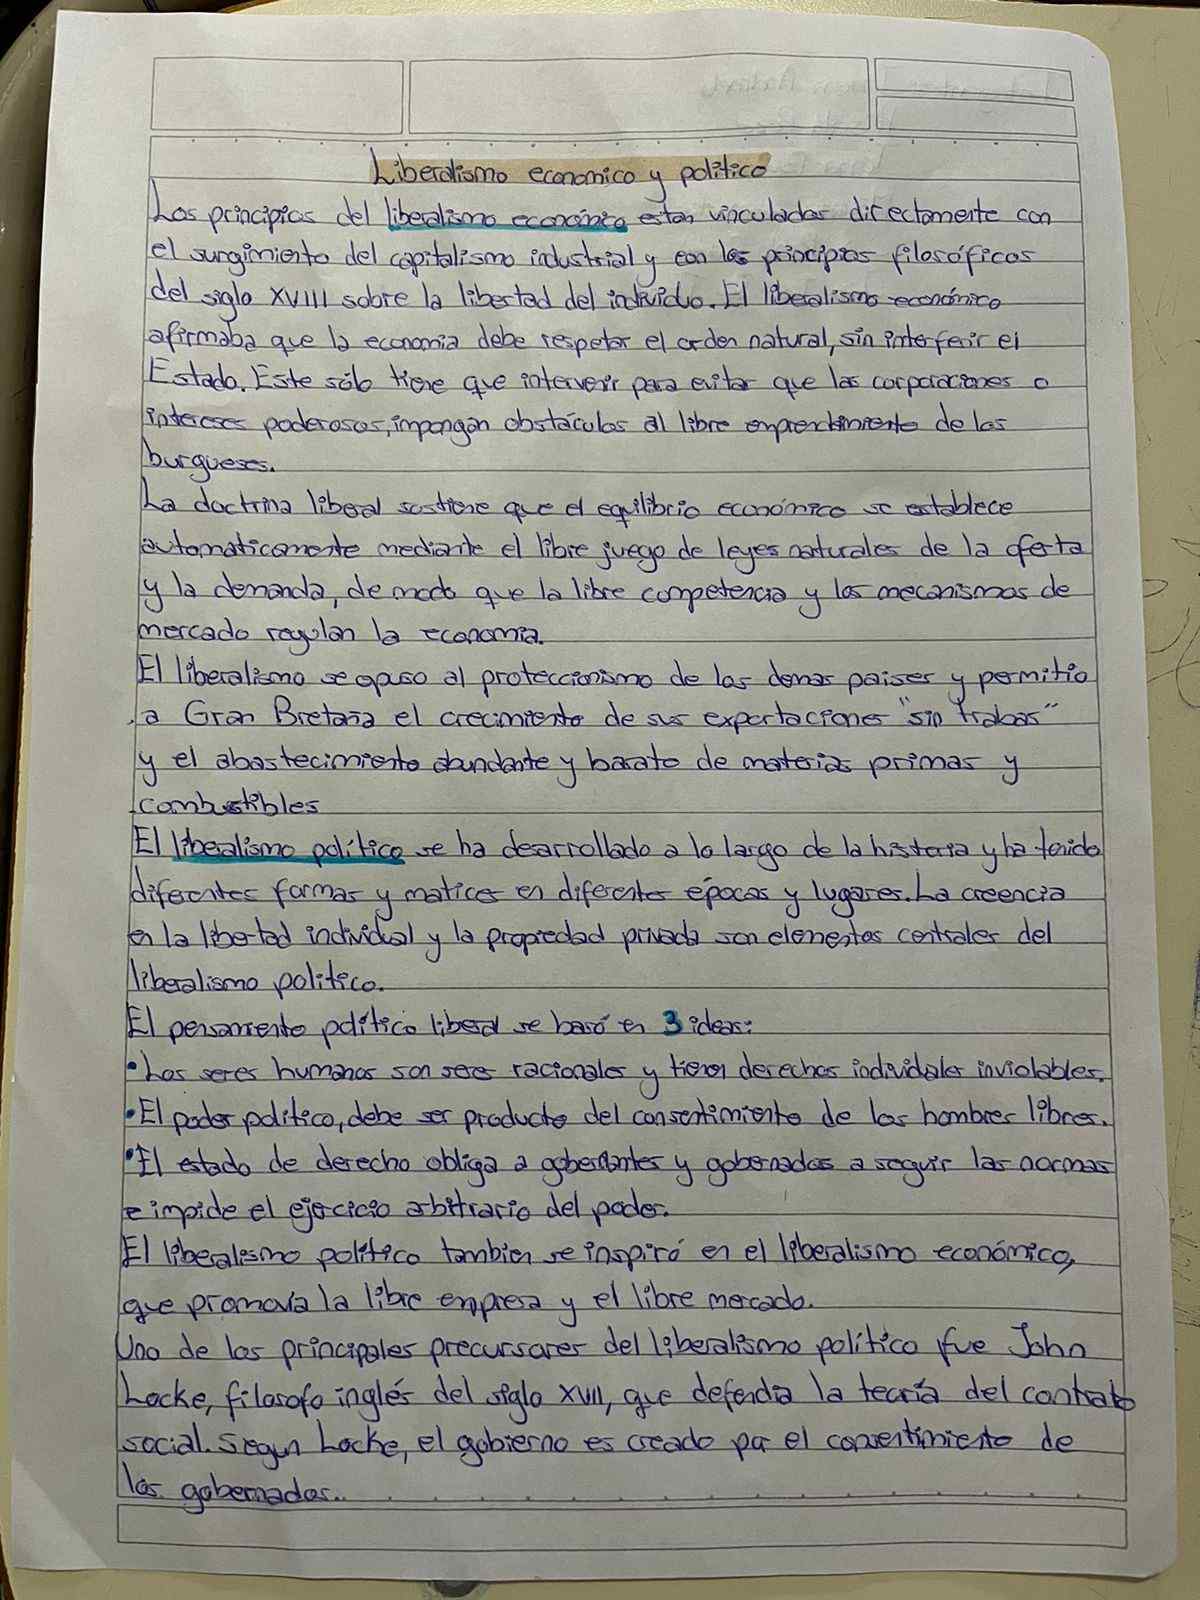 Liberalismo economico y politico
Los principios del liberalismo económico estan vinculados directamente con
el surgimiento del capitalismo industrial y con los principios filosóficos
del siglo XVIII sobre la libertad del individuo. El liberalismo económico
afirmaba que la economia debe respetar el orden natural, sin interferir el
Estado. Este sólo tiene que intervenir para evitar que las corporaciones o
intereses poderosos, impongan obstáculos al libre emprendimiento de los
burgueses.
La doctrina liberal sostiene que el equilibrio económico se establece
automáticamente mediante el libre juego de leyes naturales de la oferta
y la demanda, de modo que la libre competencia y los mecanismos de
mercado regulan la economia.
El liberalismo se opuso al proteccionismo de los demas paises y permitio
a Gran Bretaña el crecimiento de sus exportaciones "sin trabas"
y el abastecimiento abundante y barato de materias primas y
combustibles
El liberalismo político se ha desarrollado a lo largo de la historia y ha tenido
diferentes formas y matices en diferentes épocas y lugares. La creencia
en la libertad individual y la propiedad privada son elementos centrales del
liberalismo politico.
El pensamiento político liberal se basó en 3 ideas:
• Los seres humanos son seres racionales y tienen derechos individales inviolables.
• El poder politico, debe ser producto del consentimiento de los hombres libres.
• El estado de derecho obliga a gobernantes y gobernados a seguir las normas
e impide el ejercicio arbitrario del poder.
El liberalismo político tambien se inspiró en el liberalismo económico,
que promovía la libre empresa y el libre mercado.
Uno de los principales precursores del liberalismo político fue John
Locke, filosofo inglés del siglo XVII, que defendia la teoría del contrato
social. Segun Locke, el gobierno es creado por el consentimiento de
los gobernados.